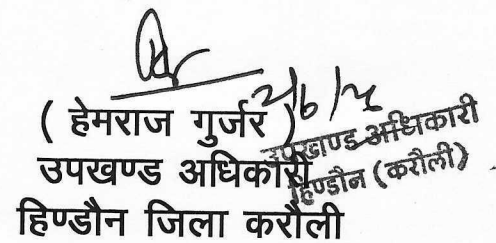 ( हेमराज गुर्जर )
उपखण्ड अधिकारी
हिण्डौन जिला करौली
उपखण्ड अधिकारी
हिण्डौन (करौली)